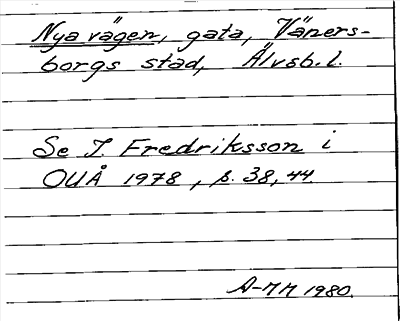 Nya vägen, gata, Väners-
borgs stad, Älvsb. l.
Se I. Fredriksson i
OUÅ 1978, s. 38, 44.
A-MM 1980.